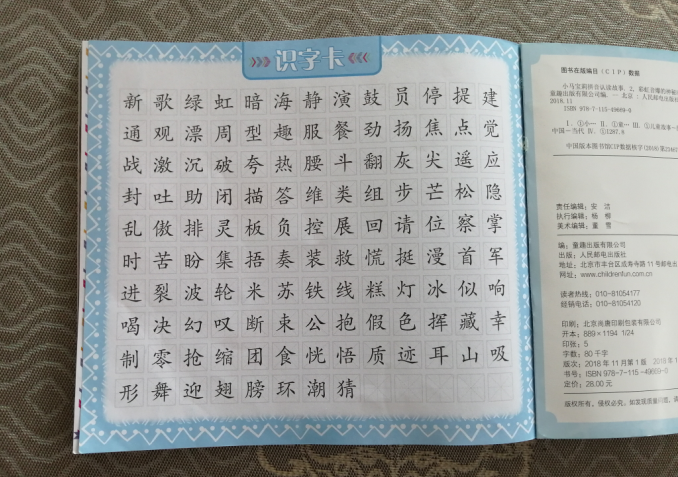 识字卡
新歌绿虹暗海静演鼓员停提建
通观漂周型趣服餐劲扬焦点觉
战激沉破夸热腰斗翻灰尖遥应
封吐助闭描答维类组步芒松隐
乱傲排灵板负控展回请位察掌
时苦盼集捂奏装救慌挺漫首军
进裂波轮米苏铁线糕灯冰似响
喝决幻叹断束公抱假色挥藏幸
制零抢缩团食恍悟质迹耳山吸
形舞迎翅膀环潮猜
图书在版编目(CIP)数据
小马宝莉拼音认读故事.2,彩虹音爆的神秘
童趣出版有限公司编.—北京:人民邮电出版
2018.11
ISBN 978-7-115-49669-0
Ⅰ.①小… Ⅱ.①童… Ⅲ.①儿童故事
中国-当代 Ⅳ.①I287.8
中国版本图书馆CIP数据核字(2018)第
责任编辑:安洁
执行编辑:杨柳
美术编辑:董雪
编:童趣出版有限公司
出版:人民邮电出版社
地址:北京市丰台区成寿寺路11号邮电出版
网址:www.childrenfun.com.cn
读者热线:010-81054177
经销电话:010-81054120
印刷:北京尚唐印刷包装有限公司
开本:889×1194 1/24
印张:5
字数:80千字
版次:2018年11月第1版 2018年1
书号:ISBN 978-7-115-49669-0
定价:28.00元
版权所有,侵权必究。如发现质量问题,